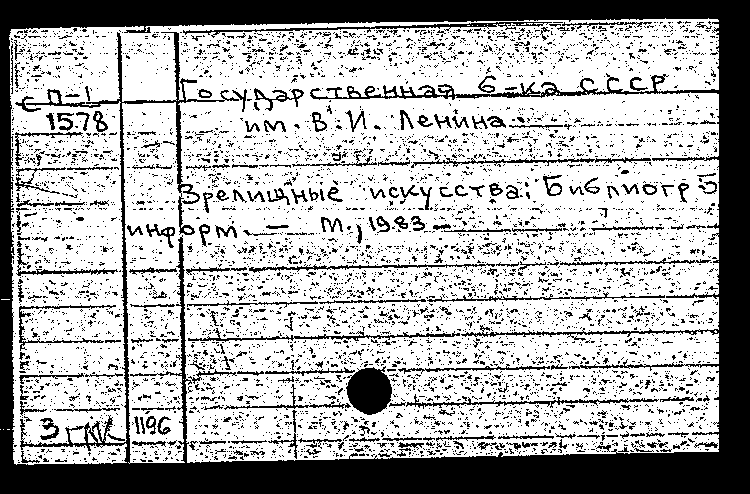 С П-1 Государственная б-ка СССР
1578 им. В.И. Ленина.
Зрелищные искусства: Библиогр
информ. — М., 1983 —
3 1196